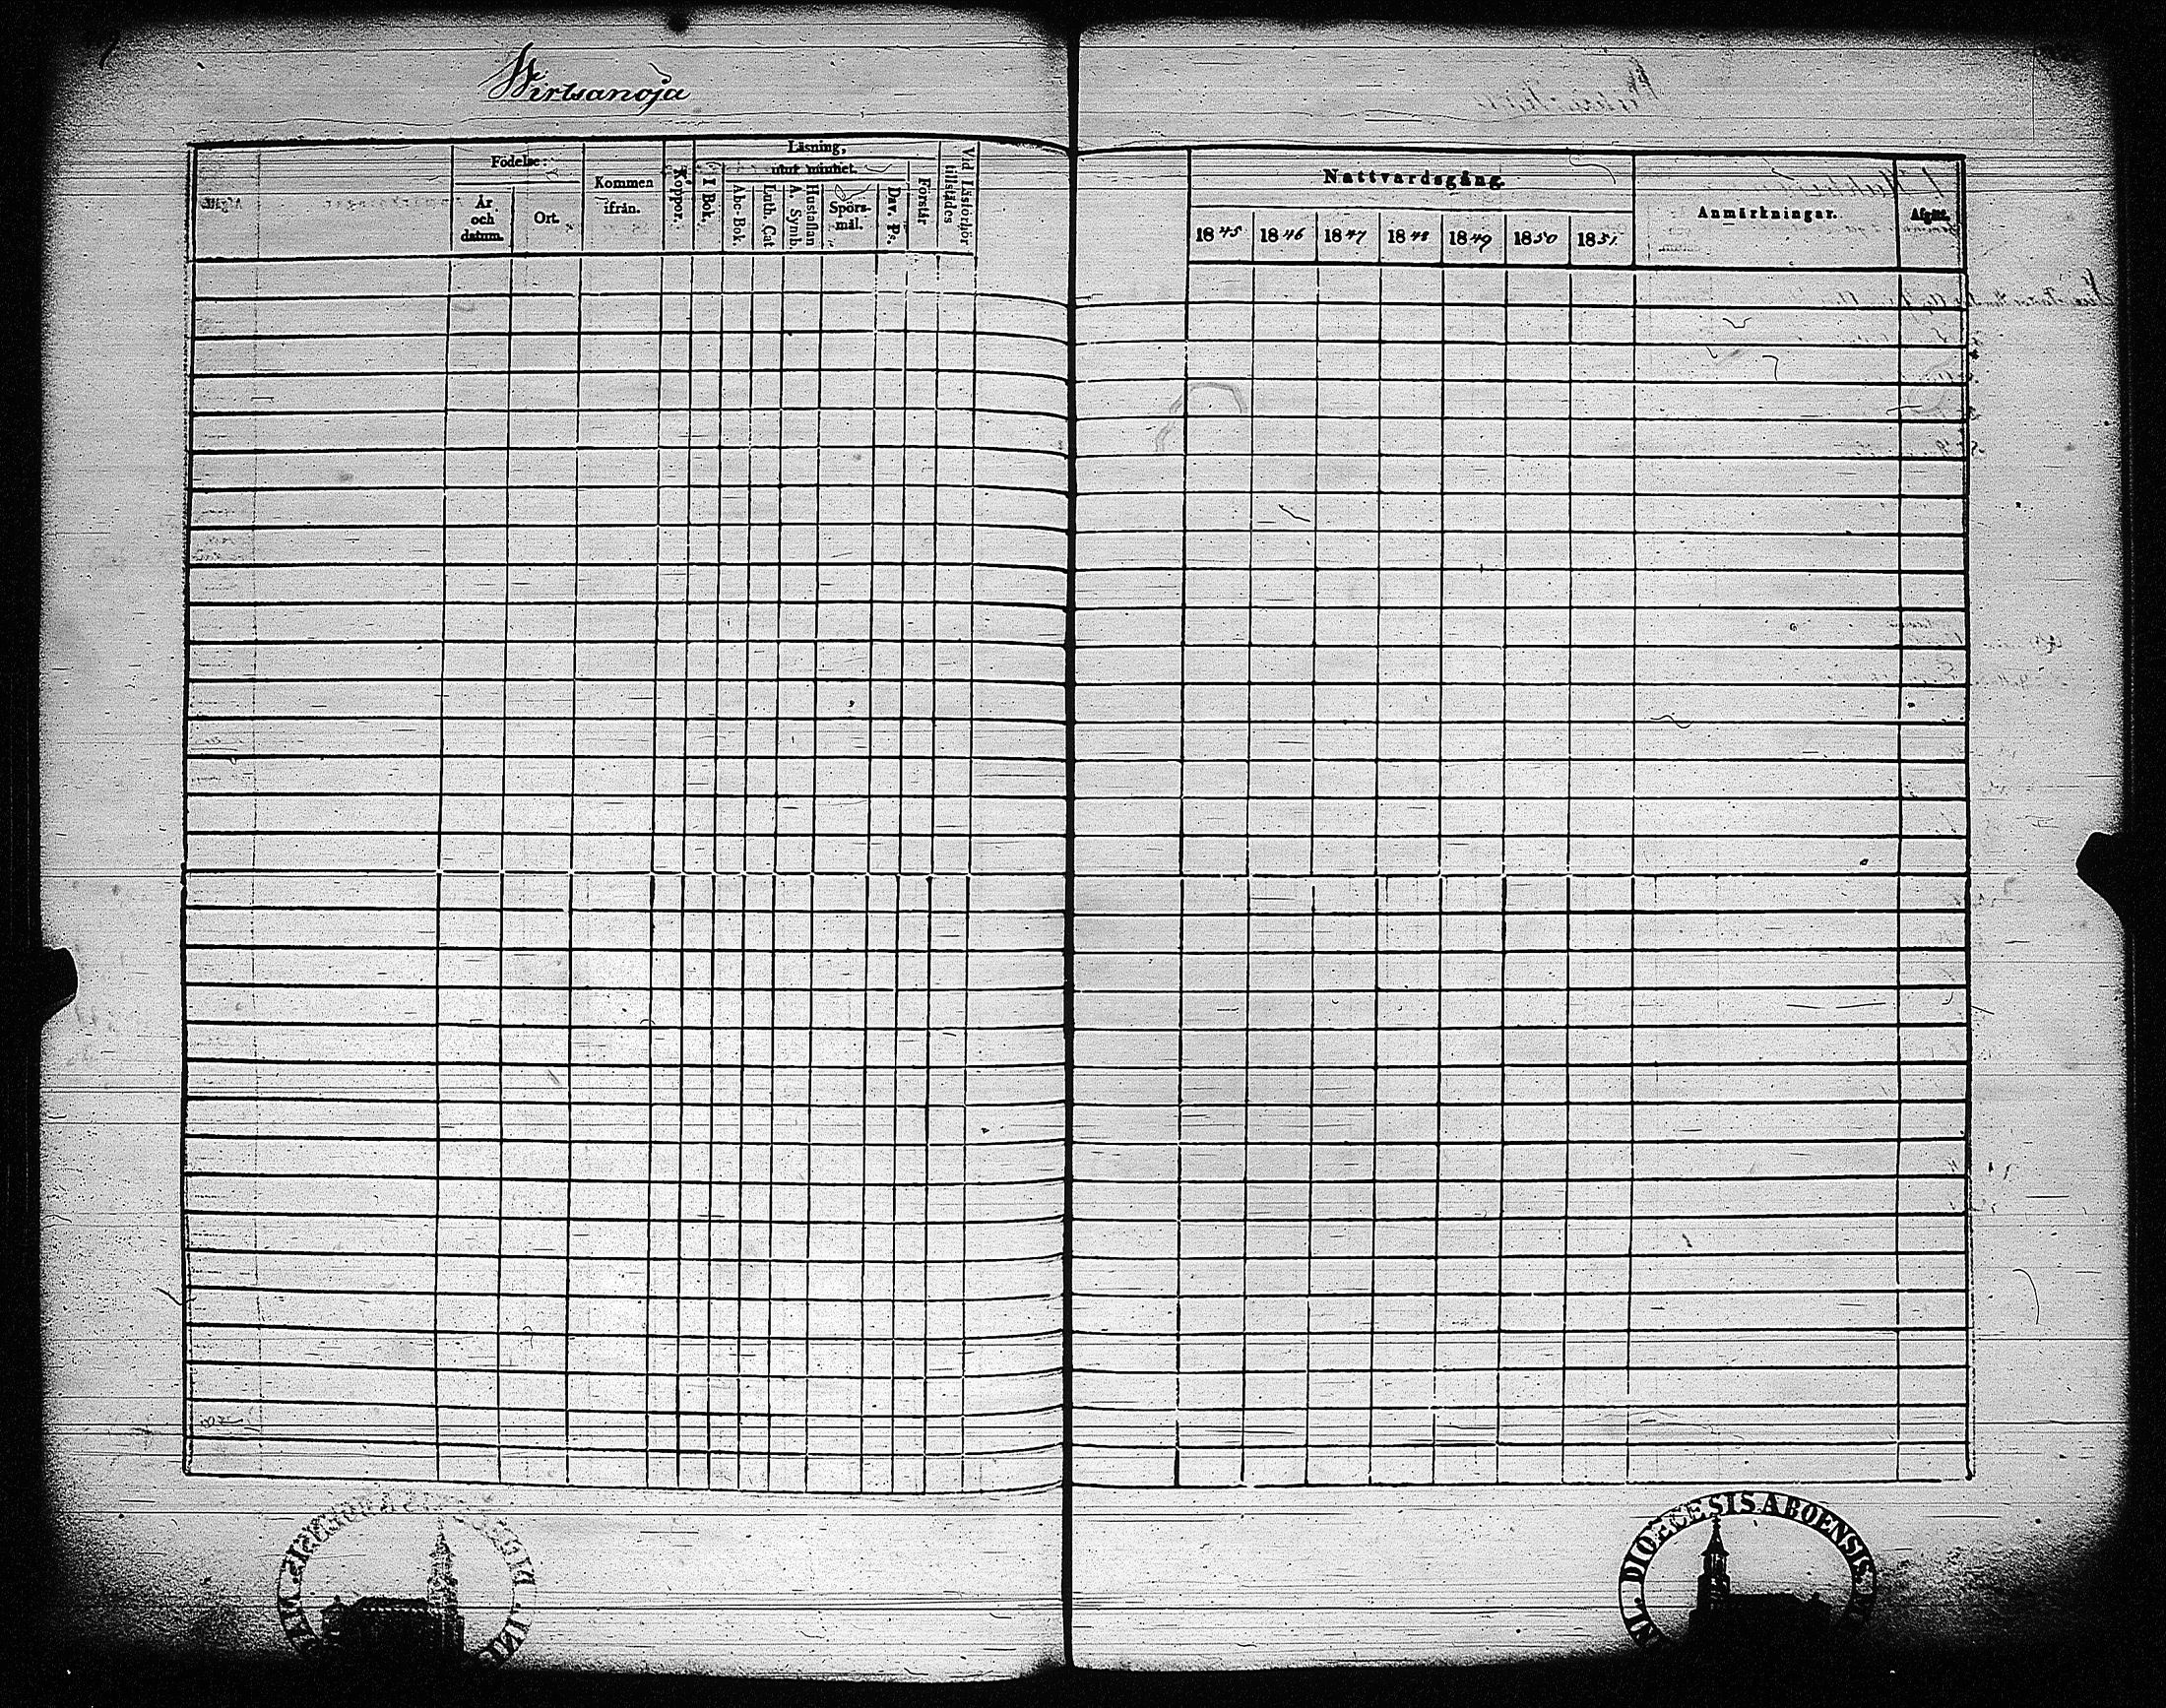 Wirtsanoja
Födelse:
År och datum.
Ort.
Kommen ifrån.
Koppor.
Läsning,
I Bok.
utur minnet.
Abc-Bok.
Luth. Cat
A. Symb.
Hustaflan
Spörs-mål.
Dav. Ps.
Förstår
Vid Läsförhör tillstädes
Nattvardsgång.
1845 1846 1847 1848 1849 1850 1851.
Anmärkningar.
Afgått.
DIOECESIS ABOENSIS